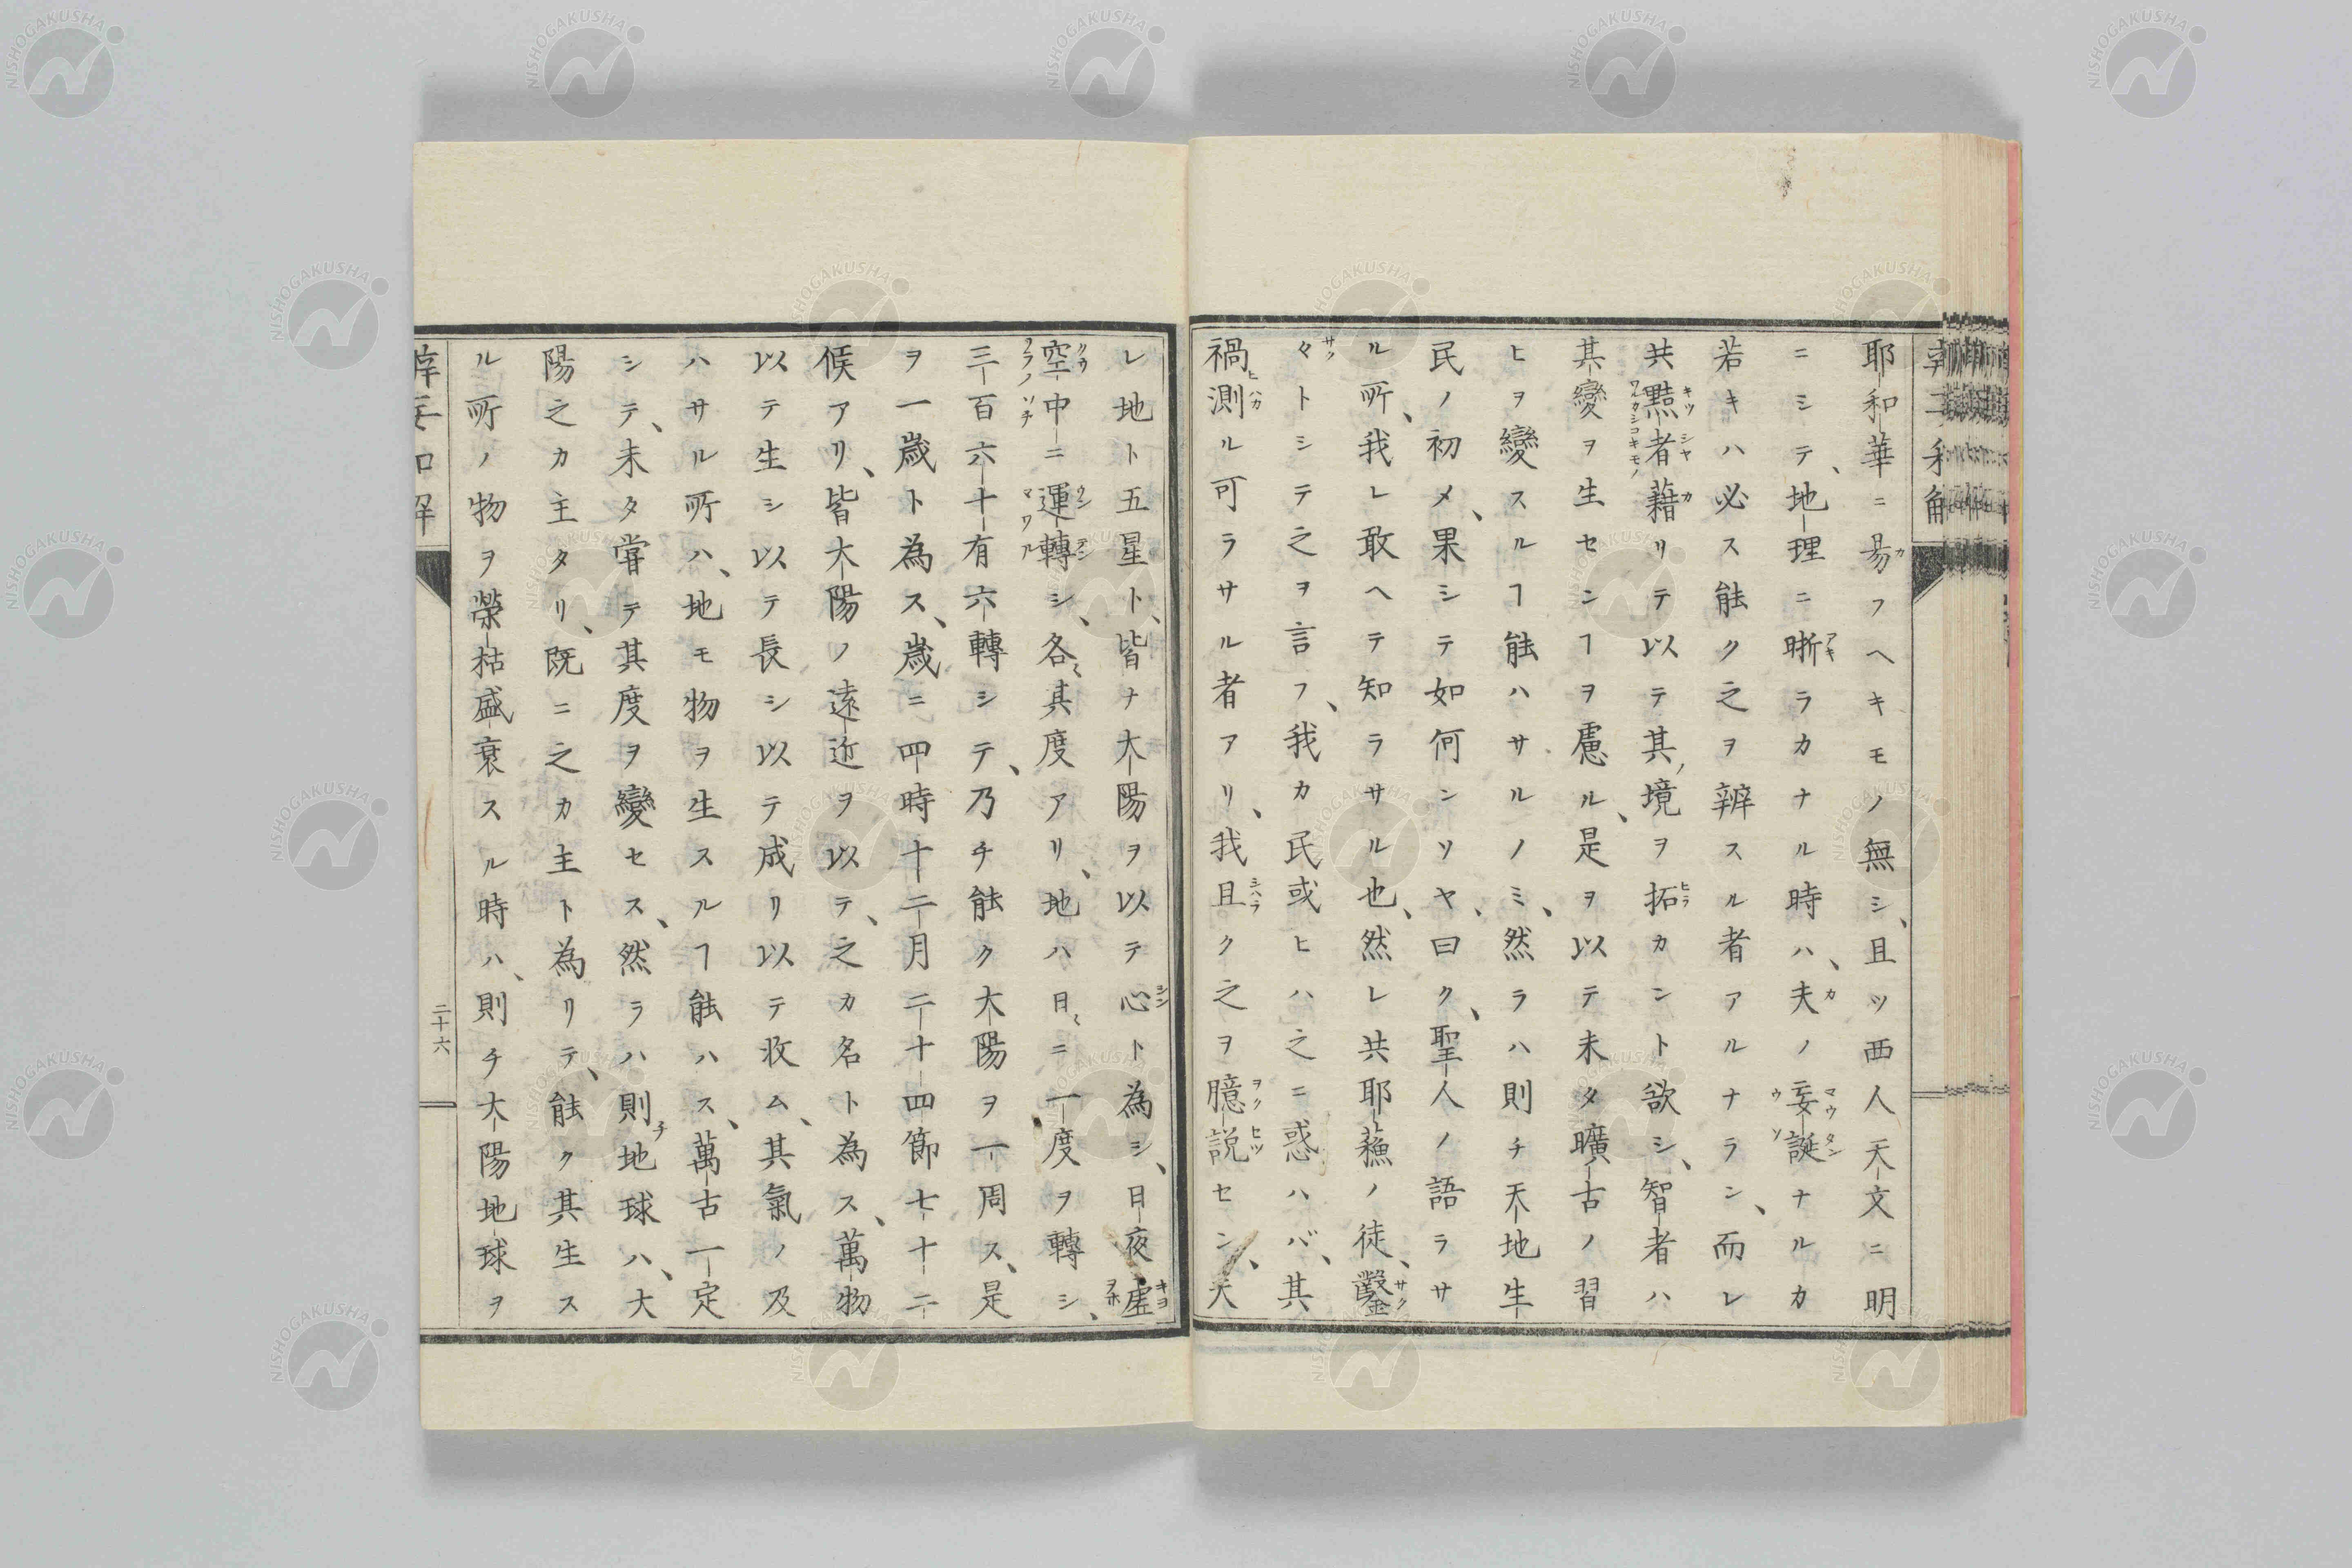 耶和華ニ易フヘキモノ無シ、且ツ西人天文ニ明
ニシテ、地理ニ晰ラカナル時ハ、夫ノ妄誕ナルカ
若キハ必ス能ク之ヲ辨スル者アルナラン、而レ
共黠者藉リテ以テ其ノ境ヲ拓カント欲シ、智者ハ
其變ヲ生センヿヲ慮ル、是ヲ以テ未タ曠古ノ習
ヒヲ變スルヿ能ハサルノミ、然ラハ則チ天地生
民ノ初メ、果シテ如何ンソヤ、曰ク、聖人ノ語ラサ
ル所、我レ敢ヘテ知ラサル也、然レ共耶蘓ノ徒、鑿
々トシテ之ヲ言フ、我カ民或ヒハ之ニ惑ハバ、其
禍測ル可ラサル者アリ、我且ク之ヲ臆説セン、天
レ地ト五星ト、皆ナ太陽ヲ以テ心ト為シ、日夜虚
空中ニ運轉シ、各〻其度アリ、地ハ日〻ニ一度ヲ轉シ、
三百六十有六轉シテ、乃チ能ク太陽ヲ一周ス、是
ヲ一歳ト為ス、歳ニ四時十二月二十四節七十二
候アリ、皆太陽ノ遠近ヲ以テ、之カ名ト為ス、萬物
以テ生シ以テ長シ以テ成リ以テ收ム、其氣ノ及
ハサル所ハ、地モ物ヲ生スルヿ能ハス、萬古一定
シテ、未タ嘗テ其度ヲ變セス、然ラハ則チ地球ハ、太
陽之カ主タリ、既ニ之カ主ト為リテ、能ク其生ス
ル所ノ物ヲ榮枯盛衰スル時ハ、則チ太陽地球ヲ
二十六
NISHOGAKUSHA